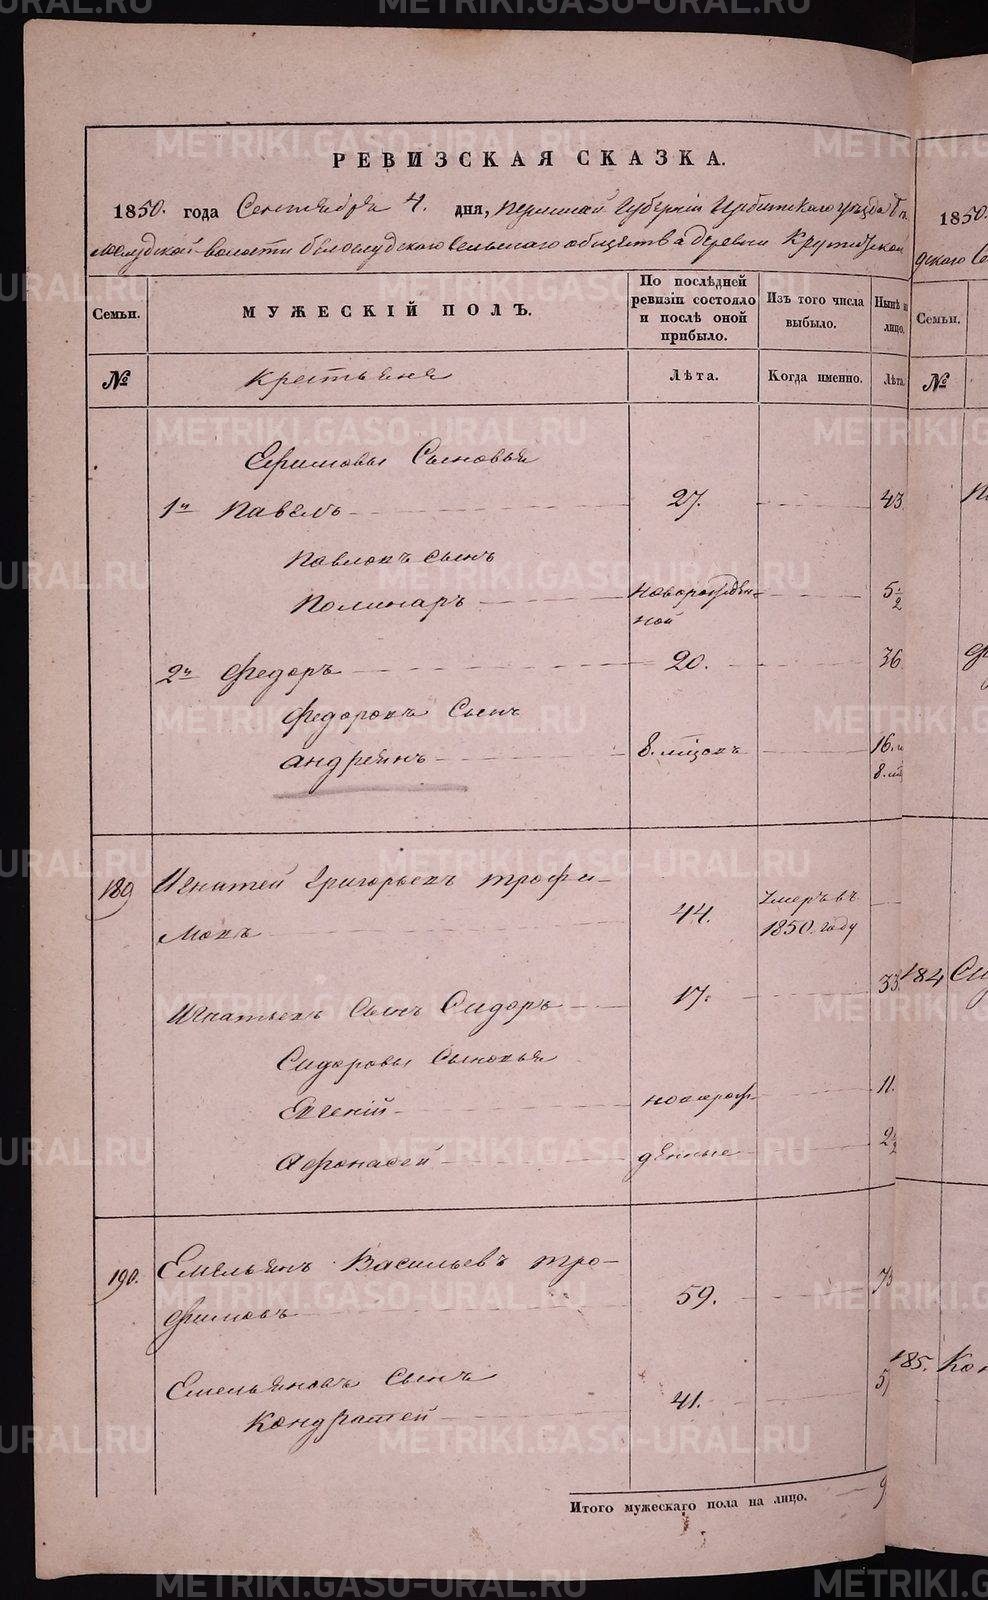 METRIKI.GASO-URAL.RU
РЕВИЗСКАЯ СКАЗКА.
1850. года Сентября 4. дня, Пермской Губернии Ирбитского уезда Бе-
лослудской волости белослудского Сельского общества деревни Крутихской
Семьи.
МУЖЕСКІЙ ПОЛЪ.
По послѣдней ревизіи состояло и послѣ оной прибыло.
Изъ того числа выбыло.
Нынѣ на лицо.
№
Крестьяне
Лѣта.
Когда именно.
Лѣта.
Ефимовы Сыновья
1й Павелъ 27. 43
Павловъ сынъ
Полинаръ новорожден- 5 1/2
ной
2й Федоръ 20. 36
Федоровъ Сынъ
Андреянъ 8. мѣсяц 16. и
8. мѣ
189 Игнатей Григорьевъ Трофи-
мовъ 44. умеръ въ
1850. году
Игнатьевъ Сынъ Сидоръ 17. 33
Сидоровы Сыновья
Евгеній новорож- 11.
Афонасей денные 2 1/2
190. Емельянъ Васильевъ Тро-
фимовъ 59. 75
Емельяновъ Сынъ
Кондратей 41. 57
Итого мужескаго пола на лицо. 9
1850.
дского Се
Семьи.
№
184 Си
185. Кон